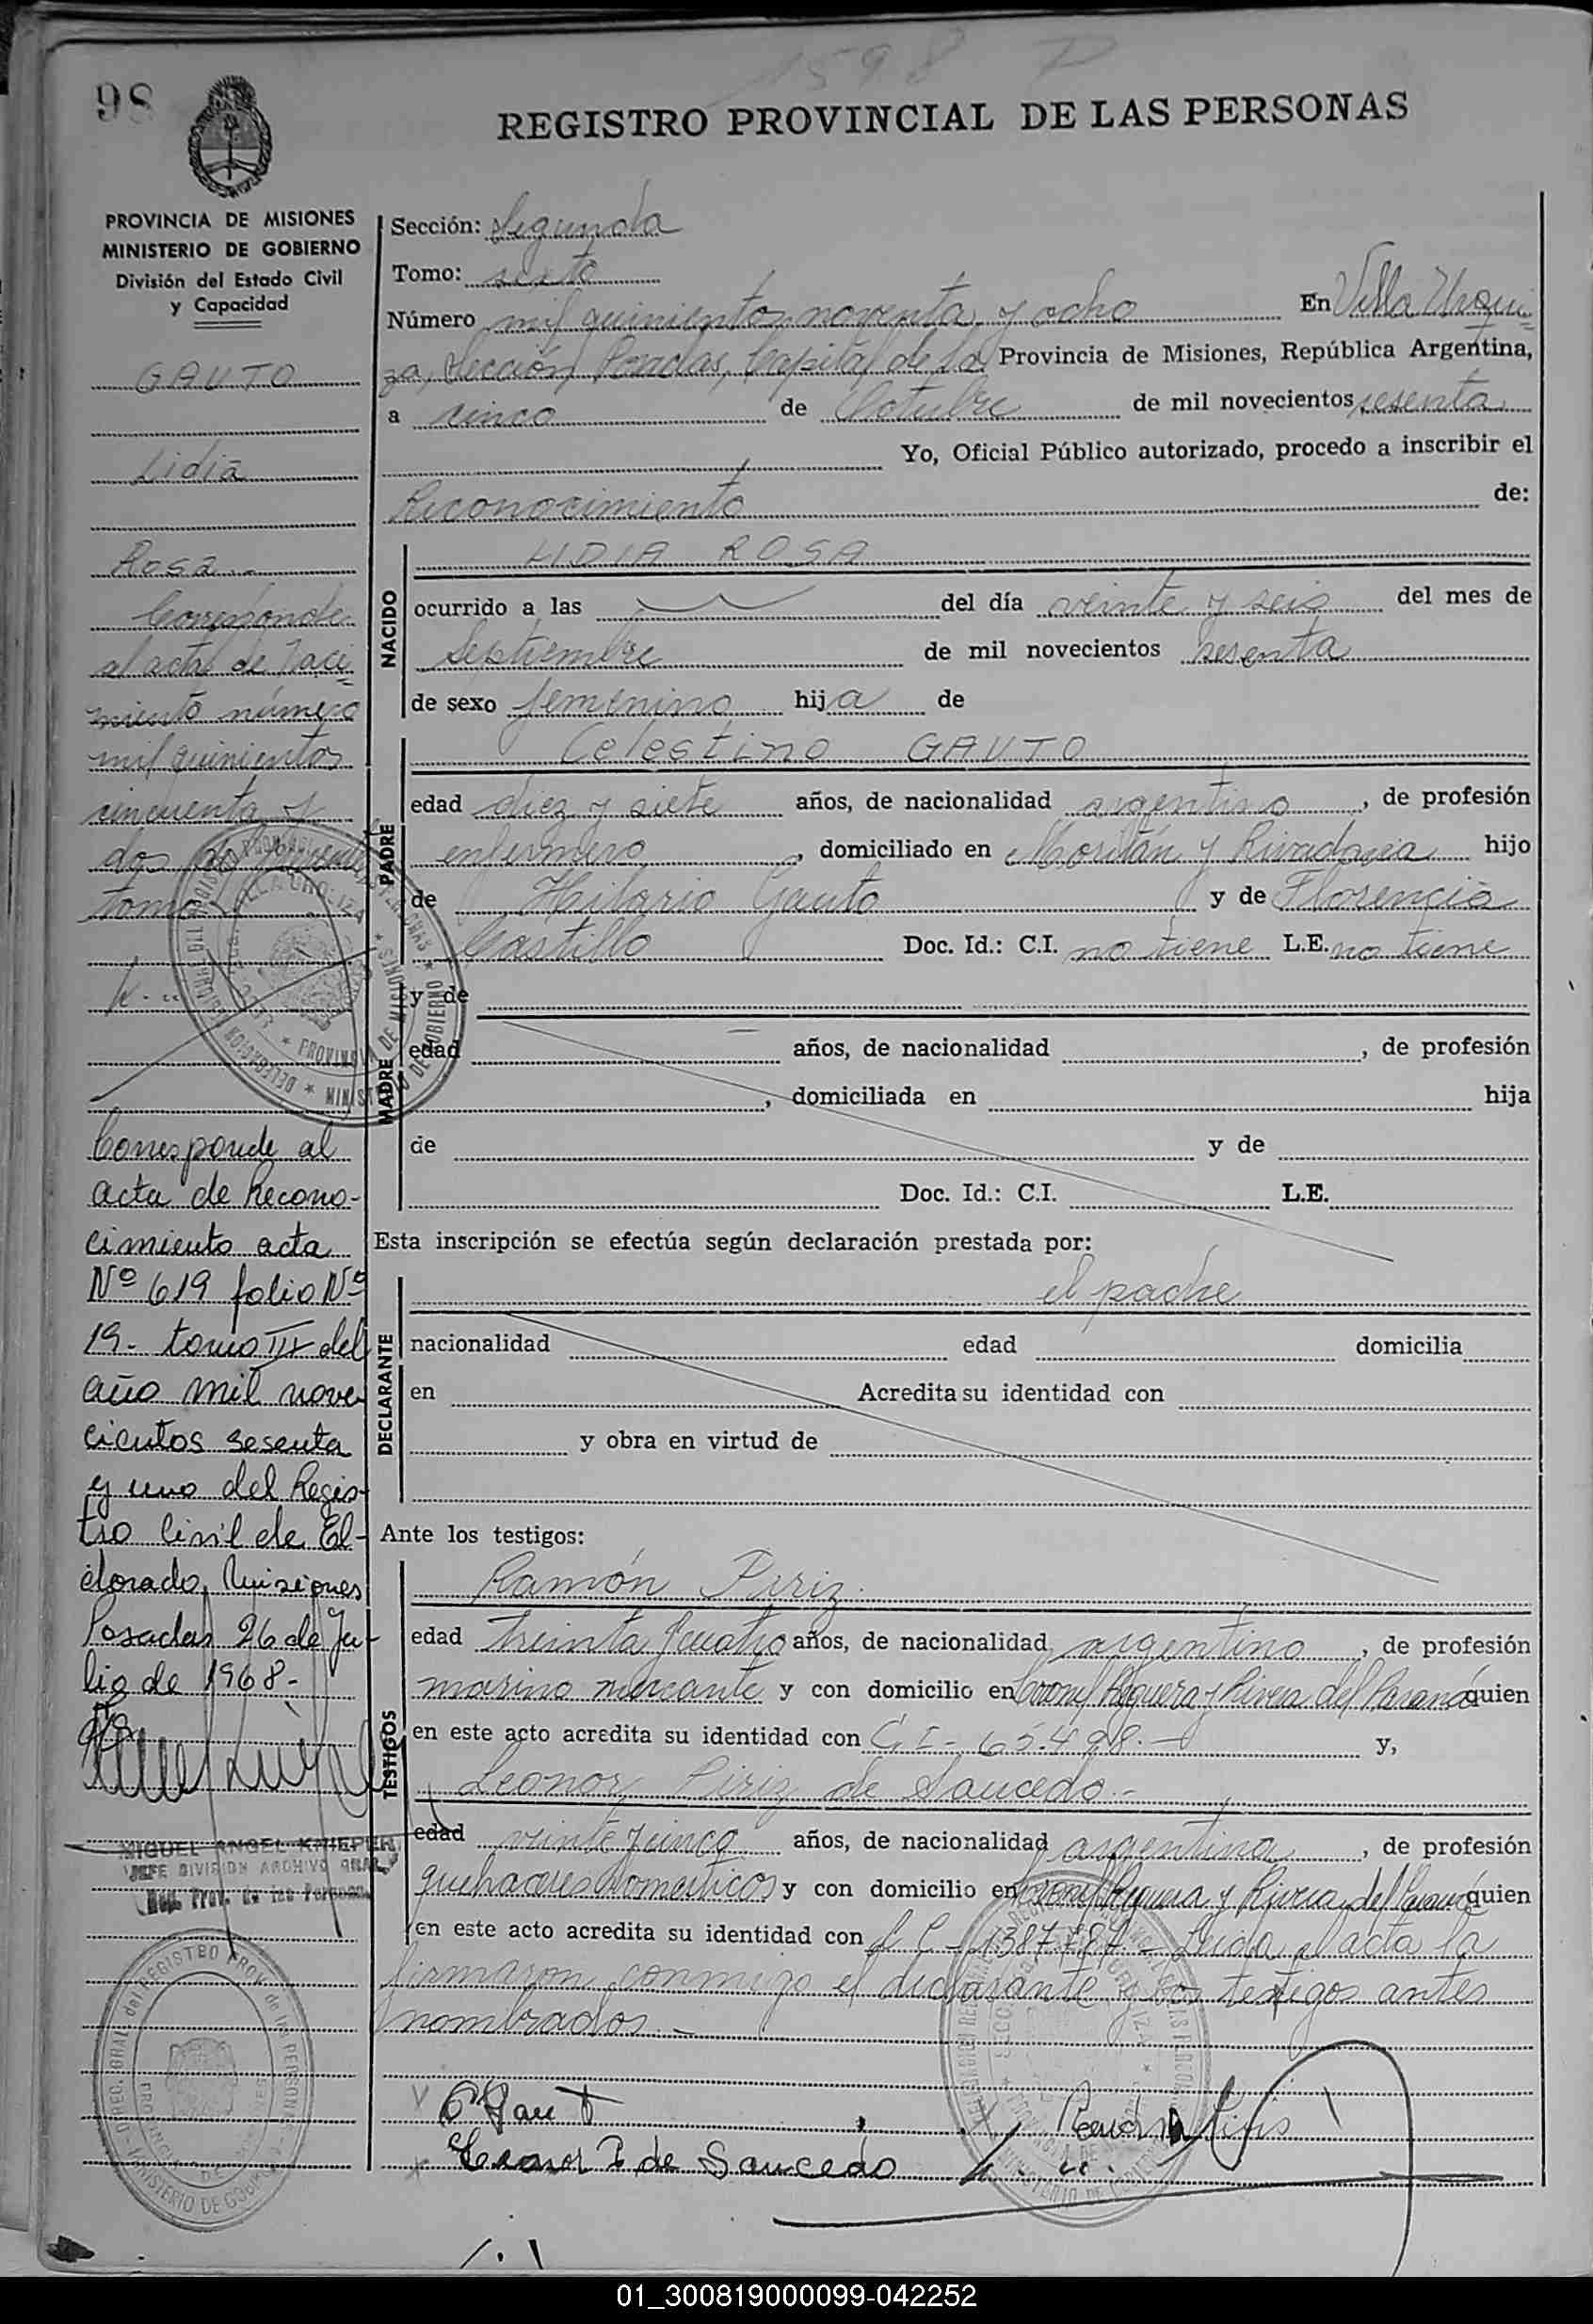 98
1598 P
REGISTRO PROVINCIAL DE LAS PERSONAS
PROVINCIA DE MISIONES
MINISTERIO DE GOBIERNO
División del Estado Civil
y Capacidad
GAUTO
Lidia
Rosa
Corresponde
al acta de naci=
miento número
mil quinientos
cincuenta y
dos
tomo
Corresponde al
acta de Recono-
cimiento acta
Nº 619 folio Nº
19- tomo III del
año mil nove
cientos sesenta
y uno del Regis-
tro Civil de El-
dorado, Misiones
Posadas 26 de Ju-
lio de 1968-
MIGUEL ANGEL KNIEPER
JEFE DIVISION ARCHIVO GRAL
Reg. Prov. de las Personas
Sección: Segunda
Tomo: sexto
Número mil quinientos noventa y ocho En Villa Urqui=
za, Sección Posadas, Capital de la Provincia de Misiones, República Argentina,
a cinco de Octubre de mil novecientos sesenta
Yo, Oficial Público autorizado, procedo a inscribir el
Reconocimiento de:
NACIDO
LIDIA ROSA
ocurrido a las del día veinte y seis del mes de
Septiembre de mil novecientos sesenta
de sexo femenino hija de
PADRE
Celestino GAUTO
edad diez y siete años, de nacionalidad argentino, de profesión
enfermero, domiciliado en y Rivadavia hijo
de Hilario Gauto y de Florencia
Castillo Doc. Id.: C.I. no tiene L.E. no tiene
MADRE
y de
edad años, de nacionalidad , de profesión
, domiciliada en hija
de y de
Doc. Id.: C.I. L.E.
Esta inscripción se efectúa según declaración prestada por:
DECLARANTE
el padre
nacionalidad edad domicilia
en Acredita su identidad con
y obra en virtud de
Ante los testigos:
TESTIGOS
Ramón Piriz
edad treinta y cuatro años, de nacionalidad argentino, de profesión
marino mercante y con domicilio en Coronel Reguera y Rivera del Paraná quien
en este acto acredita su identidad con C I - 65.498.- y,
Leonor Piriz de Saucedo.-
edad veinte y cinco años, de nacionalidad argentina, de profesión
quehaceres domesticos y con domicilio en Coronel Reguera y Rivera del Paraná quien
en este acto acredita su identidad con L C - 1387787 - Leida el acta la
firmaron conmigo el declarante y los testigos antes
nombrados.-
C Gaut
Leonor P de Saucedo
01_300819000099-042252